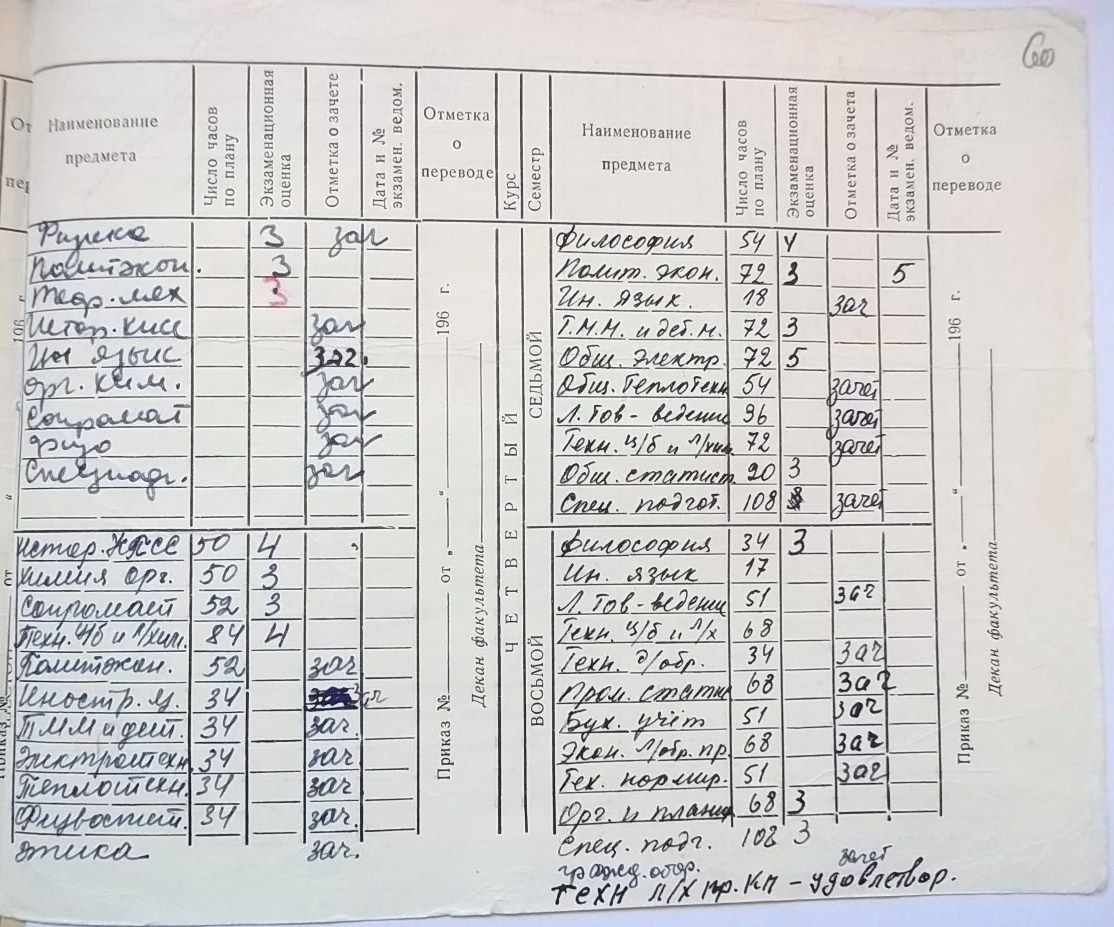 60
Наименование предмета Число часов по плану Экзаменационная оценка Отметка о зачете Дата и № экзамен. ведом. Отметка о переводе Курс Семестр Наименование предмета Число часов по плану Экзаменационная оценка Отметка о зачета Дата и № экзамен. ведом. Отметка о переводе
Физика 3 зач
Политэкон. 3
Теор. мех 3
Истор. КПСС зач
Ин язык зач.
Орг. хим. зач
Сопромат зач
Физо зач
Спецподг. зач
Истор. КПСС 50 4
Химия орг. 50 3
Сопромат 52 3
Техн. ц/б и л/хим. 84 4
Политэкон. 52 зач
Иностр. я. 34 зач
ТММ и дет. 34 зач.
Электротехн. 34 зач.
Теплотехн. 34 зач.
Физвоспит. 34 зач.
этика зач.
Приказ № от „ “ 196 г.
Декан факультета
ЧЕТВЕРТЫЙ
СЕДЬМОЙ
Философия 54 4
Полит. экон. 72 3 5
Ин. язык. 18 зач
Т.М.М. и дет. м. 72 3
Общ. электр. 72 5
Общ. Теплотехн 54 зачет
Л. Тов-ведение 36 зачет
Техн. ц/б и л/хим 72 зачет
Общ. статист. 20 3
Спец. подгот. 108 зачет
ВОСЬМОЙ
Философия 34 3
Ин. язык 17
Л. Тов-ведение 51 зач
Техн. ц/б и л/х 68
Техн. д/обр. 34 зач
Пром. статис 68 зач
Бух. учёт 51 зач
Экон. л/обр. пр. 68 зач
Тех. нормир. 51 зач
Орг. и планир 68 3
Спец. подг. 102 3
гражд. обор. зачет
Техн л/х пр. КП - удовлетвор.
Приказ № от „ “ 196 г.
Декан факультета